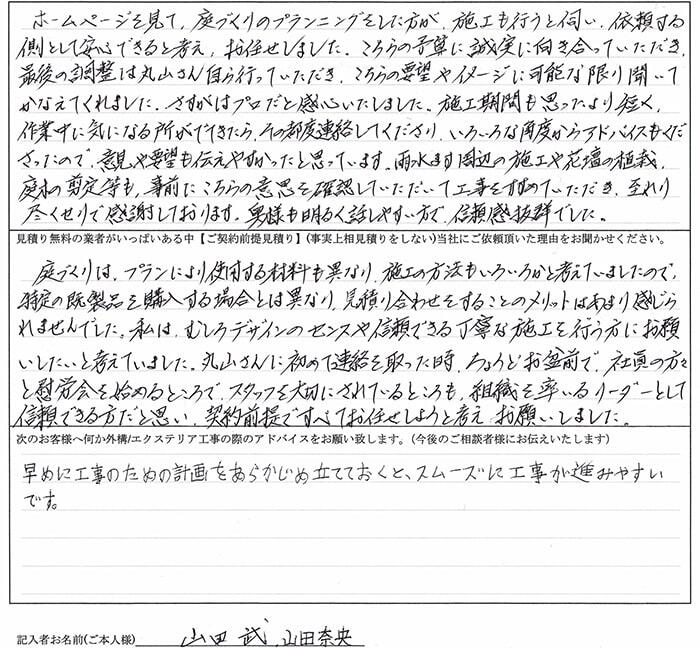 ホームページを見て、庭づくりのプランニングをした方が、施工も行うと伺い、依頼する
側として安心できると考え、お任せしました。こちらの予算に誠実に向き合っていただき、
最後の調整は丸山さん自ら行っていただき、こちらの要望やイメージに可能な限り聞いて
かなえてくれました。さすがはプロだと感心いたしました。施工期間も思ったより短く、
作業中に気になる所がでてきたら、その都度連絡してくださり、いろいろな角度からアドバイスもくだ
さったので、意見や要望も伝えやすかったと思っています。雨水ます周辺の施工や花壇の植栽、
庭木の剪定等も、事前にこちらの意思を確認していただいて工事をすすめていただき、至れり
尽くせりで感謝しております。奥様も明るく話しやすい方で、信頼感抜群でした。
見積り無料の業者がいっぱいある中【ご契約前提見積り】(事実上相見積りをしない)当社にご依頼頂いた理由をお聞かせください。
庭づくりは、プランにより使用する材料も異なり、施工の方法もいろいろかと考えていましたので、
特定の既製品を購入する場合とは異なり、見積り合わせをすることのメリットはあまり感じら
れませんでした。私は、むしろデザインのセンスや信頼できる丁寧な施工を行う方にお願
いしたいと考えていました。丸山さんに初めて連絡を取った時、ちょうどお盆前で、社員の方々
と慰労会を始めるところで、スタッフを大切にされているところも、組織を率いるリーダーとして
信頼できる方だと思い、契約前提ですべてお任せしようと考え、お願いしました。
次のお客様へ何か外構/エクステリア工事の際のアドバイスをお願い致します。(今後のご相談者様にお伝えいたします)
早めに工事のための計画をあらかじめ立てておくと、スムーズに工事が進みやすい
です。
記入者お名前(ご本人様) 山田 武、山田奈央